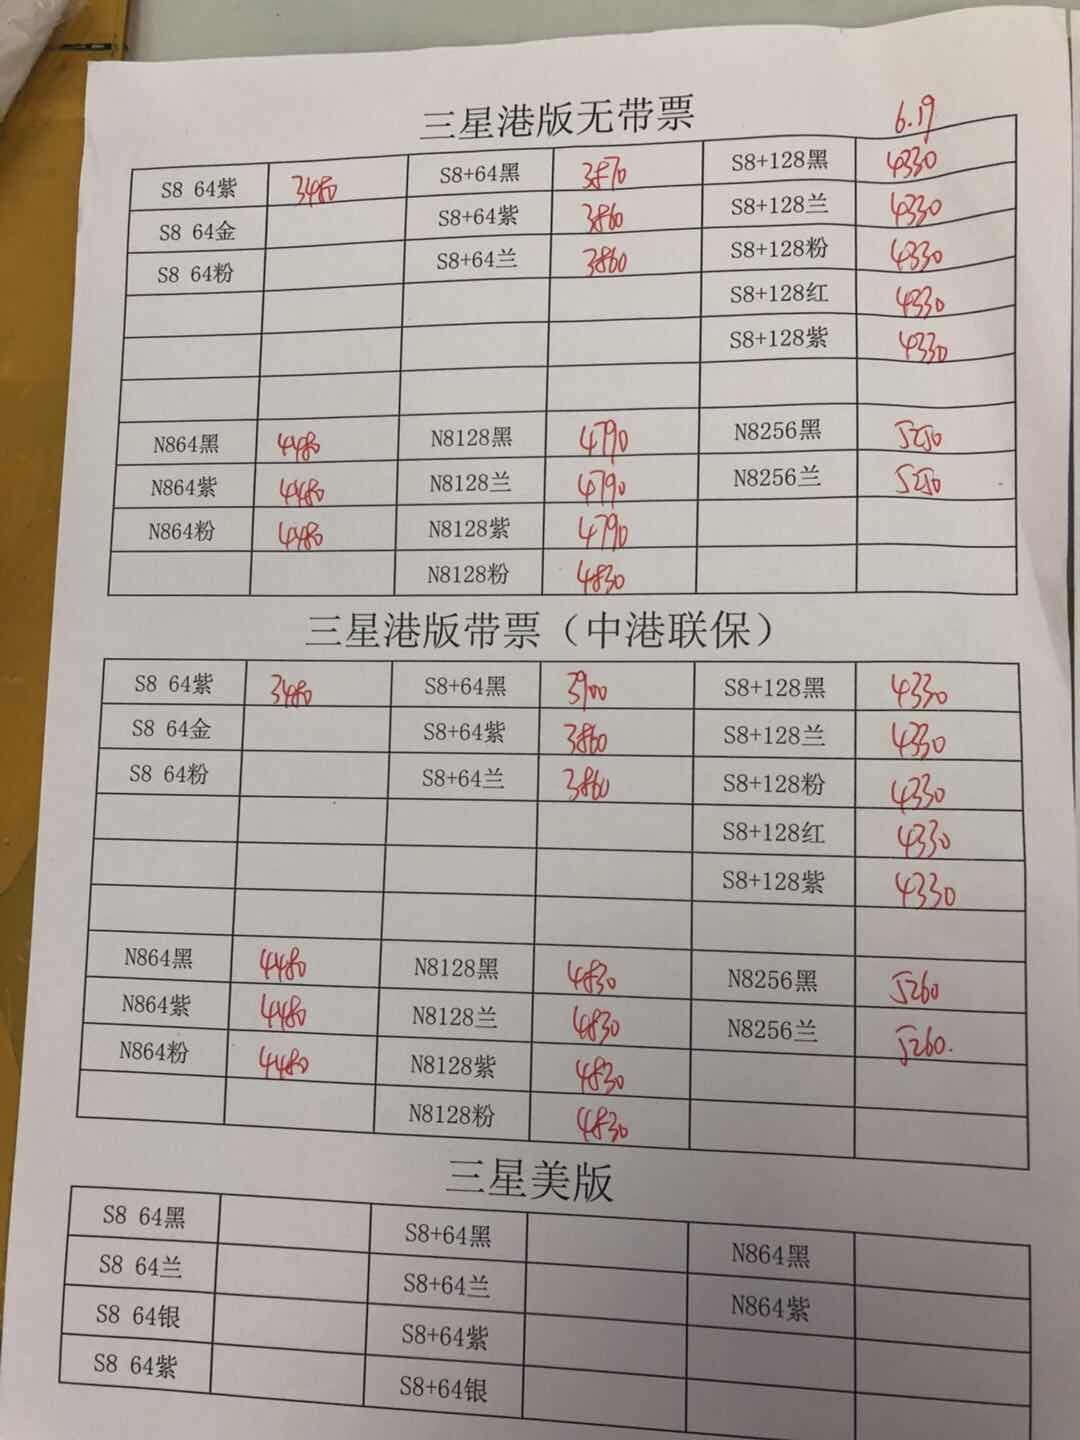 三星港版无带票 6.19
S8 64紫 3480 S8+64黑 3870 S8+128黑 4330
S8 64金 S8+64紫 3860 S8+128兰 4330
S8 64粉 S8+64兰 3860 S8+128粉 4330
S8+128红 4330
S8+128紫 4330
N864黑 4480 N8128黑 4790 N8256黑 5250
N864紫 4480 N8128兰 4790 N8256兰 5250
N864粉 4480 N8128紫 4790
N8128粉 4830
三星港版带票（中港联保）
S8 64紫 3480 S8+64黑 3900 S8+128黑 4330
S8 64金 S8+64紫 3860 S8+128兰 4330
S8 64粉 S8+64兰 3860 S8+128粉 4330
S8+128红 4330
S8+128紫 4330
N864黑 4480 N8128黑 4830 N8256黑 5260
N864紫 4480 N8128兰 4830 N8256兰 5260.
N864粉 4480 N8128紫 4830
N8128粉 4830
三星美版
S8 64黑 S8+64黑 N864黑
S8 64兰 S8+64兰 N864紫
S8 64银 S8+64紫
S8 64紫 S8+64银